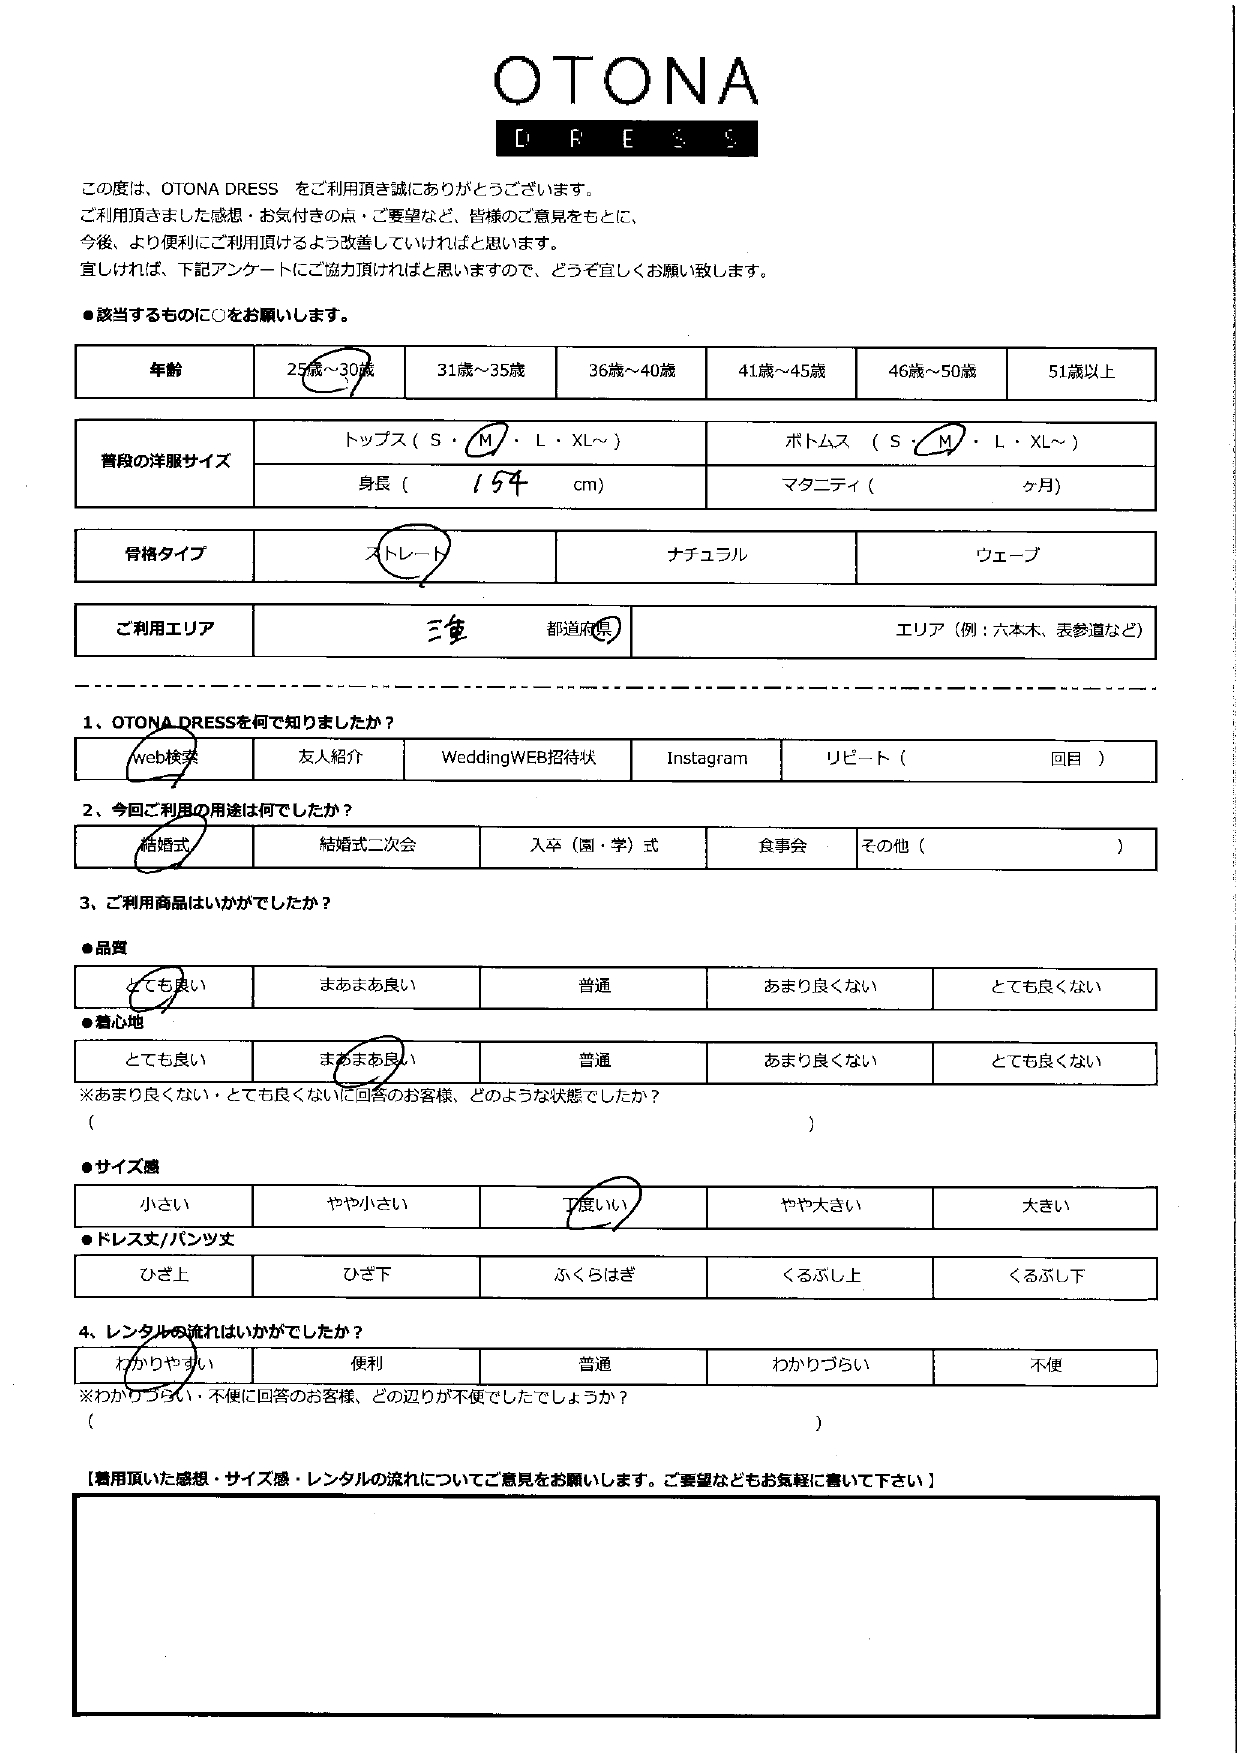 OTONA
DRESS
この度は、OTONA DRESS　をご利用頂き誠にありがとうございます。
ご利用頂きました感想・お気付きの点・ご要望など、皆様のご意見をもとに、
今後、より便利にご利用頂けるよう改善していければと思います。
宜しければ、下記アンケートにご協力頂ければと思いますので、どうぞ宜しくお願い致します。
●該当するものに○をお願いします。
年齢 25歳～30歳 31歳～35歳 36歳～40歳 41歳～45歳 46歳～50歳 51歳以上
普段の洋服サイズ
トップス ( S ・ M ・ L ・ XL～ ) ボトムス ( S ・ M ・ L ・ XL～ )
身長 ( 154 cm) マタニティ ( ヶ月)
骨格タイプ ストレート ナチュラル ウェーブ
ご利用エリア 三重 都道府県 エリア（例：六本木、表参道など）
1、OTONA DRESSを何で知りましたか？
web検索 友人紹介 WeddingWEB招待状 Instagram リピート ( 回目 )
2、今回ご利用の用途は何でしたか？
結婚式 結婚式二次会 入卒（園・学）式 食事会 その他 ( )
3、ご利用商品はいかがでしたか？
●品質
とても良い まあまあ良い 普通 あまり良くない とても良くない
●着心地
とても良い まあまあ良い 普通 あまり良くない とても良くない
※あまり良くない・とても良くないに回答のお客様、どのような状態でしたか？
( )
●サイズ感
小さい やや小さい 丁度いい やや大きい 大きい
●ドレス丈/パンツ丈
ひざ上 ひざ下 ふくらはぎ くるぶし上 くるぶし下
4、レンタルの流れはいかがでしたか？
わかりやすい 便利 普通 わかりづらい 不便
※わかりづらい・不便に回答のお客様、どの辺りが不便でしたでしょうか？
( )
【着用頂いた感想・サイズ感・レンタルの流れについてご意見をお願いします。ご要望などもお気軽に書いて下さい】